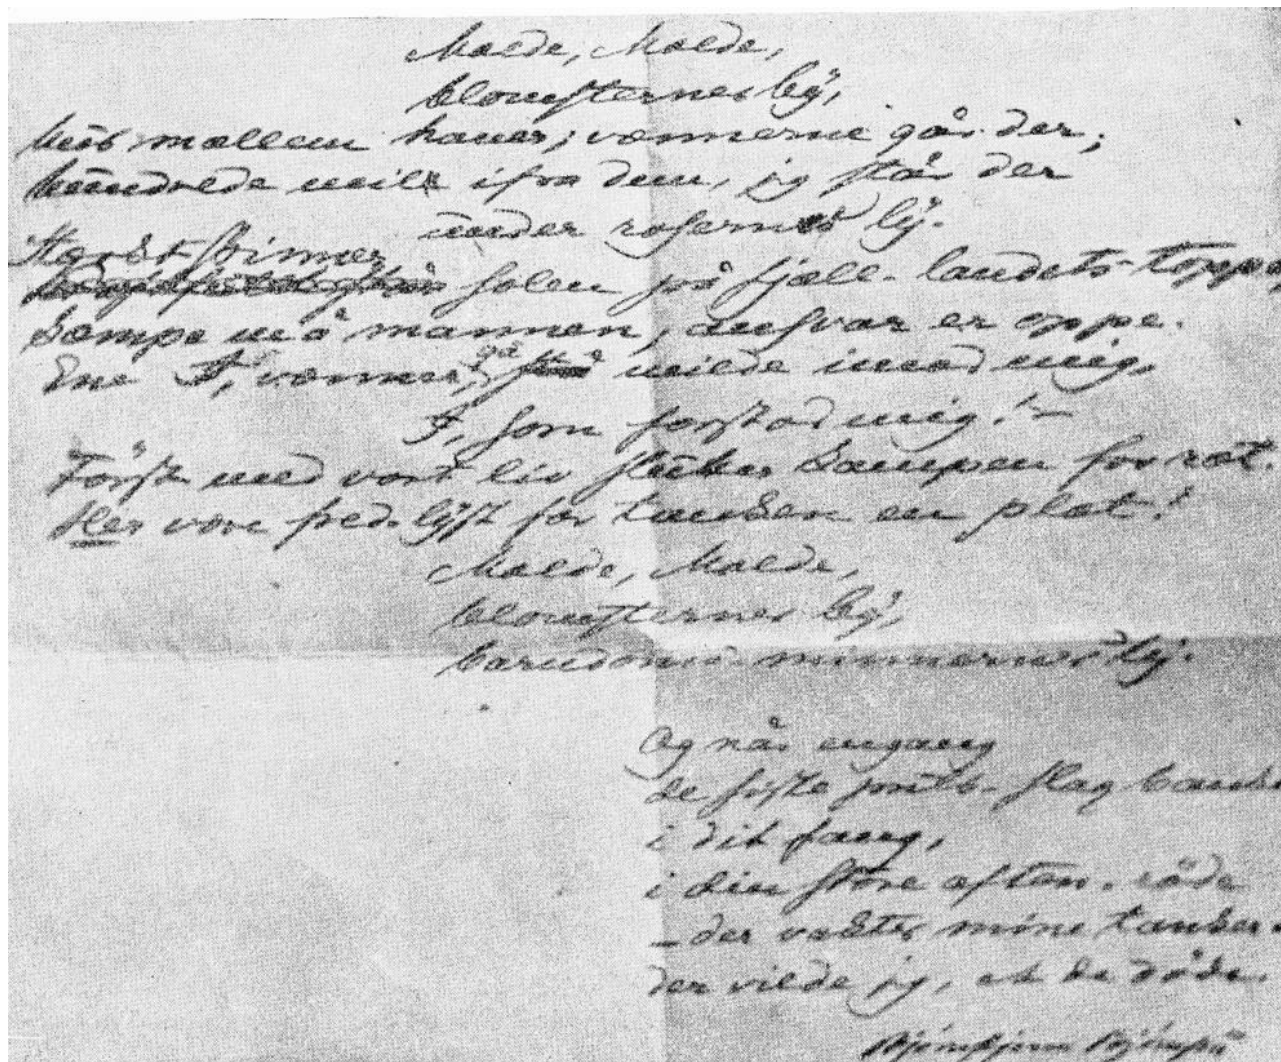 Molde, Molde,
blomsternes bÿ,
hus mællem haver; vænnerne går der;
hundrede mile ifra dem, jeg står der
under rosernes lÿ.
Stærkt skinner
solen på fjæll-landets-toppe,
kæmpe må mannen, ansvar er oppe.
Ene I, vænner, gå milde imod mig,
I, som forstod mig! –
Först med vort liv slukes kampen for ræt.
Her være fred-lÿst for tanken en plæt!
Molde, Molde,
blomsternes bÿ,
barndoms-minnernes lÿ.
Og når engang
de siste puls-slag banke
i dit fang,
i din store aften-röde
– der vaktes mine tanker.
der vilde jeg, at de döde.
Björnstjerne Björnson